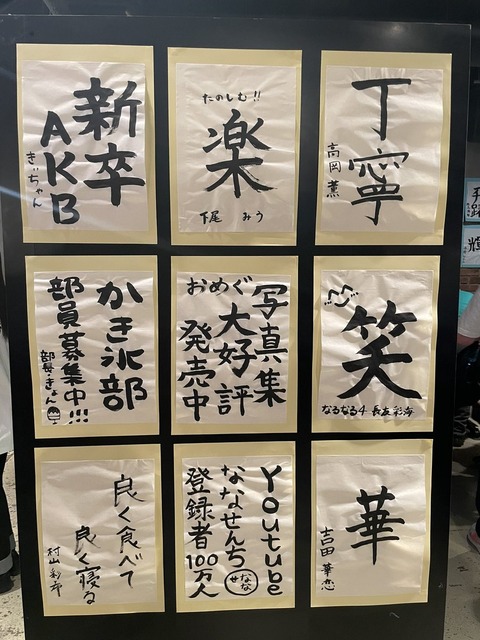 新卒
AKB
きぃちゃん
たのしむ!!
楽
下尾 みう
丁寧
高岡 薫
かき氷部
部員募集中!!!
部長・きょん
写真集
おめぐ
大好評
発売中
笑
なるなる4 長友彩海
良く食べて
良く寝る
村山彩希
Youtube
ななせんち
登録者100万人
ななせ
華
吉田 華恋